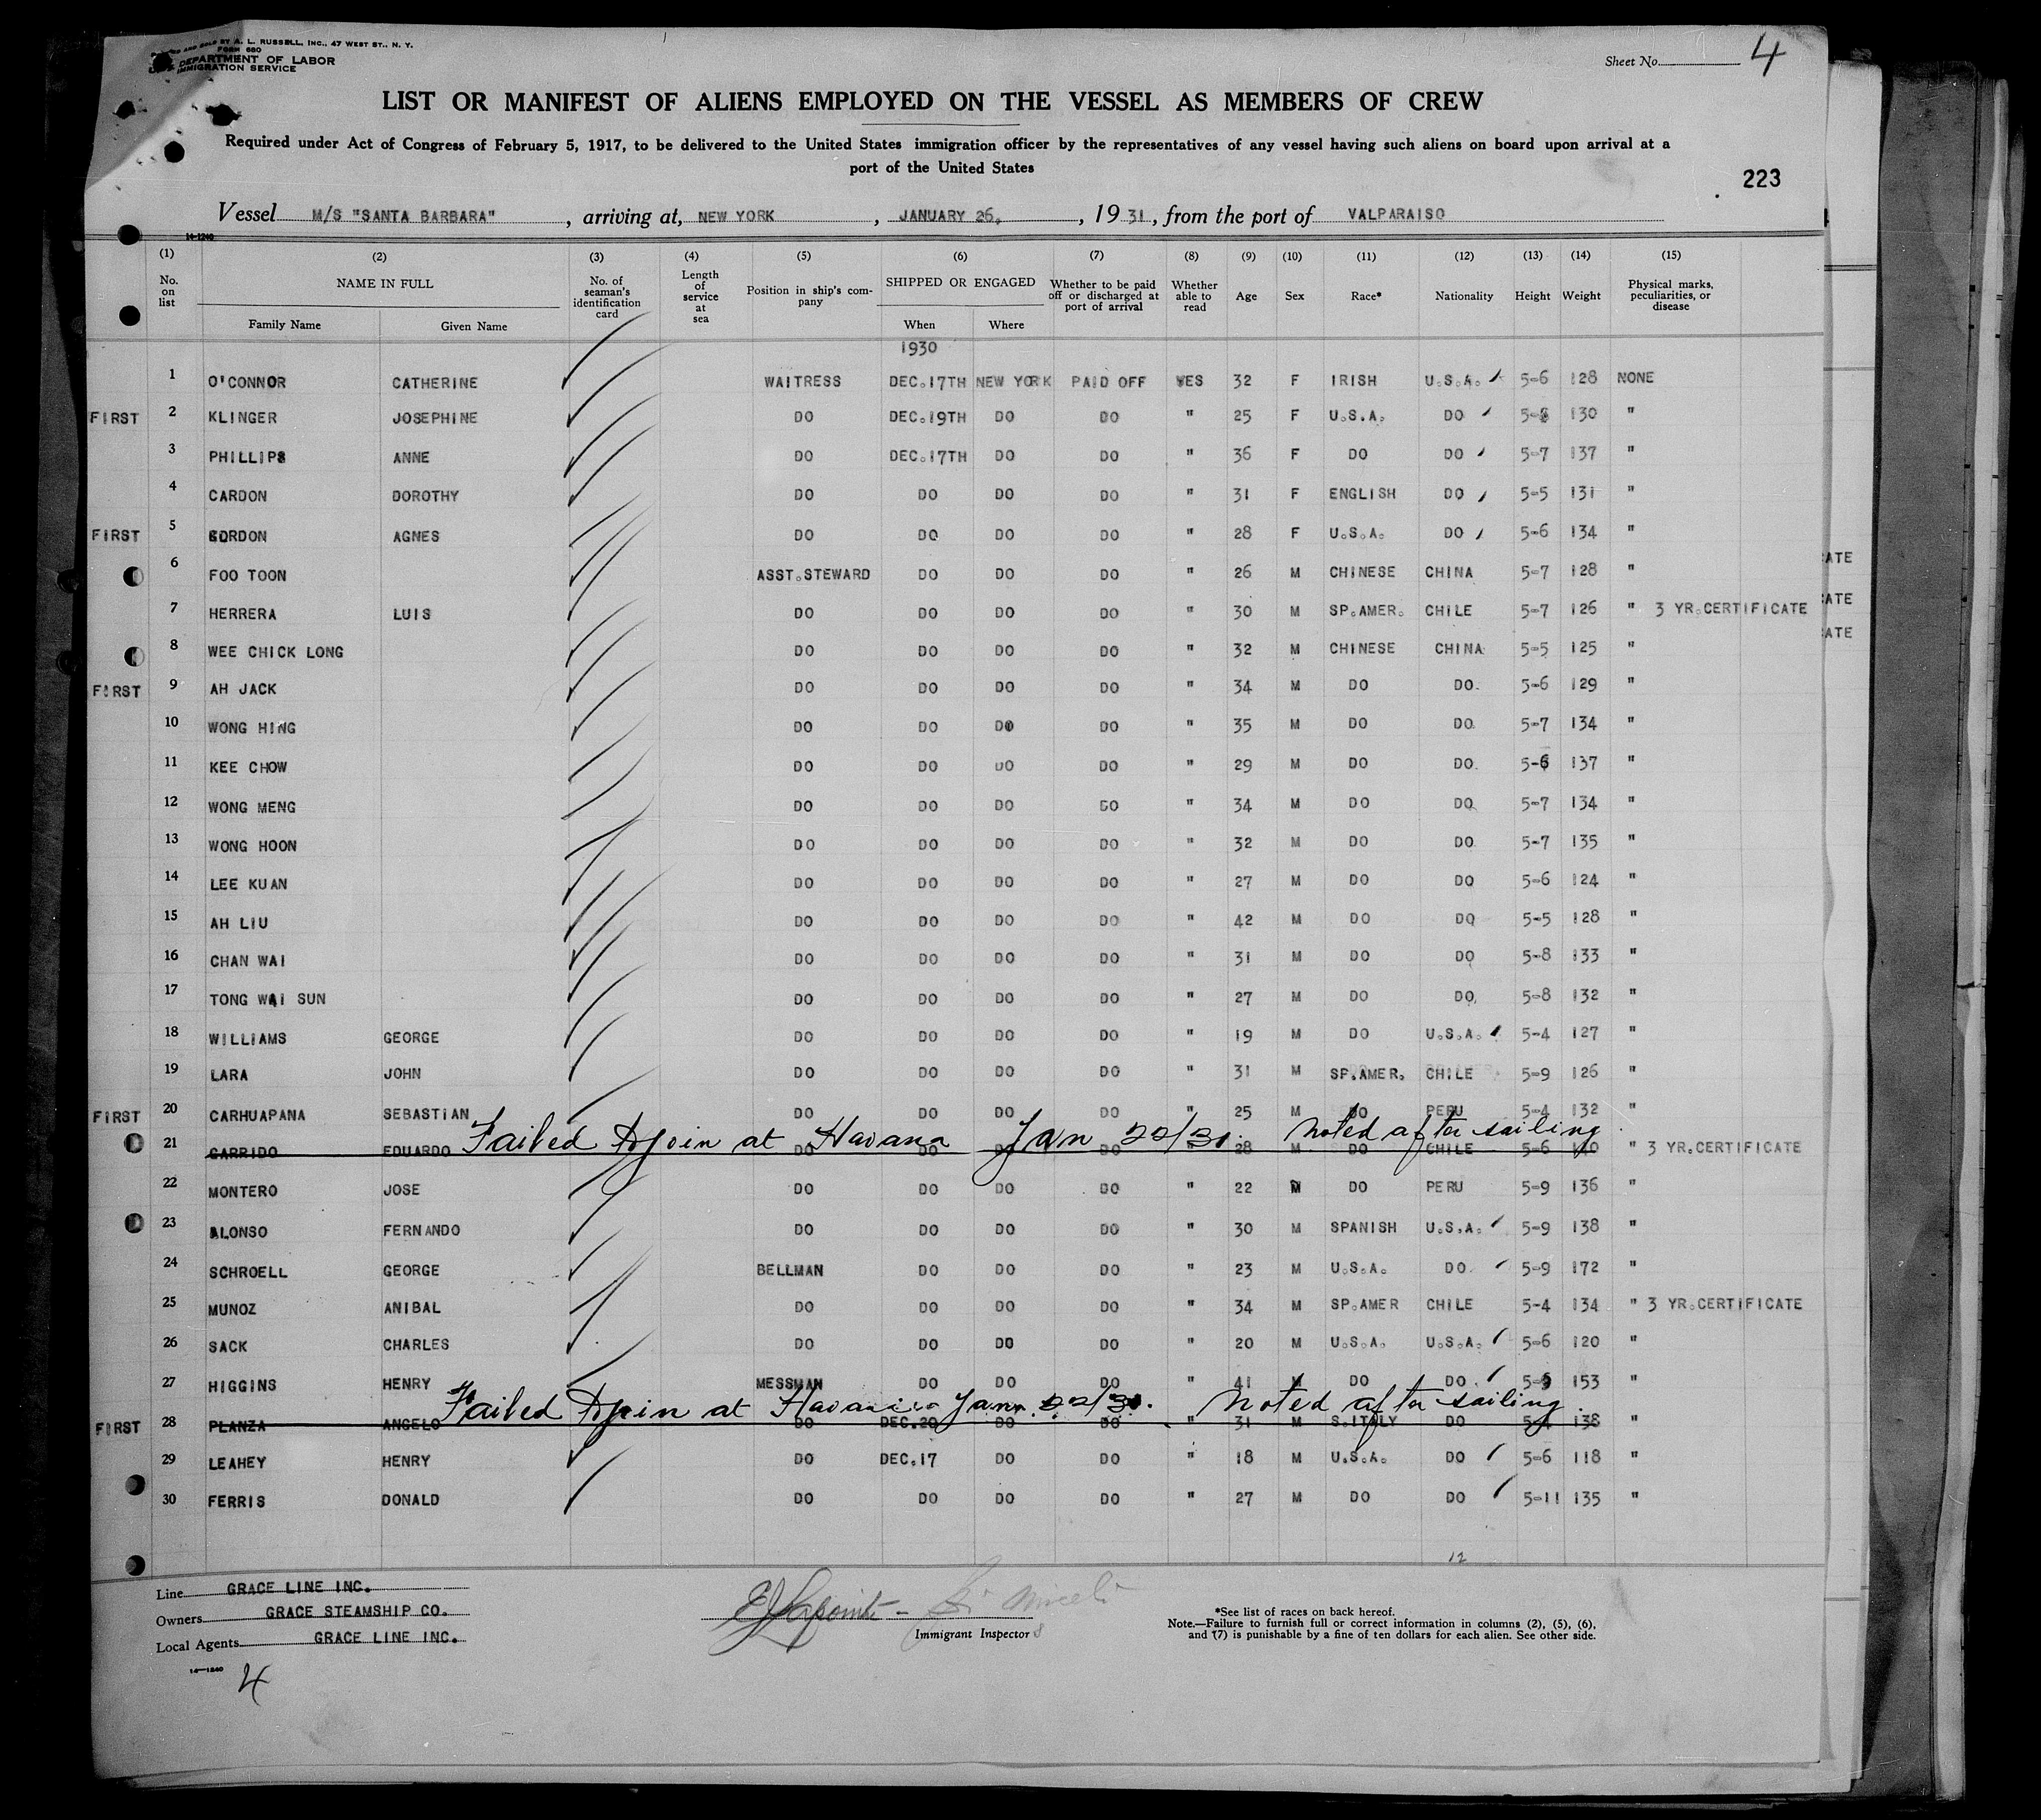 PRINTED AND SOLD BY A. L. RUSSELL, INC., 47 WEST ST., N. Y.
FORM 680
DEPARTMENT OF LABOR
IMMIGRATION SERVICE
Sheet No. 4
LIST OR MANIFEST OF ALIENS EMPLOYED ON THE VESSEL AS MEMBERS OF CREW
Required under Act of Congress of February 5, 1917, to be delivered to the United States immigration officer by the representatives of any vessel having such aliens on board upon arrival at a
port of the United States
223
Vessel M/S "SANTA BARBARA", arriving at, NEW YORK, JANUARY 26, 1931, from the port of VALPARAISO
14-1240
(1) (2) (3) (4) (5) (6) (7) (8) (9) (10) (11) (12) (13) (14) (15)
No. on list NAME IN FULL Family Name Given Name No. of seaman's identification card Length of service at sea Position in ship's company SHIPPED OR ENGAGED When Where Whether to be paid off or discharged at port of arrival Whether able to read Age Sex Race* Nationality Height Weight Physical marks, peculiarities, or disease
1930
1 O'CONNOR CATHERINE WAITRESS DEC.17TH NEW YORK PAID OFF YES 32 F IRISH U.S.A. 5-6 128 NONE
FIRST 2 KLINGER JOSEPHINE DO DEC.19TH DO DO " 25 F U.S.A. DO 5-8 130 "
3 PHILLIPS ANNE DO DEC.17TH DO DO " 36 F DO DO 5-7 137 "
4 CARDON DOROTHY DO DO DO DO " 31 F ENGLISH DO 5-5 131 "
FIRST 5 GORDON AGNES DO DO DO DO " 28 F U.S.A. DO 5-6 134 "
6 FOO TOON ASST.STEWARD DO DO DO " 26 M CHINESE CHINA 5-7 128 "
7 HERRERA LUIS DO DO DO DO " 30 M SP.AMER. CHILE 5-7 126 " 3 YR.CERTIFICATE
8 WEE CHICK LONG DO DO DO DO " 32 M CHINESE CHINA 5-5 125 "
FIRST 9 AH JACK DO DO DO DO " 34 M DO DO 5-6 129 "
10 WONG HING DO DO DO DO " 35 M DO DO 5-7 134 "
11 KEE CHOW DO DO DO DO " 29 M DO DO 5-6 137 "
12 WONG MENG DO DO DO DO " 34 M DO DO 5-7 134 "
13 WONG HOON DO DO DO DO " 32 M DO DO 5-7 135 "
14 LEE KUAN DO DO DO DO " 27 M DO DO 5-6 124 "
15 AH LIU DO DO DO DO " 42 M DO DO 5-5 128 "
16 CHAN WAI DO DO DO DO " 31 M DO DO 5-8 133 "
17 TONG WAI SUN DO DO DO DO " 27 M DO DO 5-8 132 "
18 WILLIAMS GEORGE DO DO DO DO " 19 M DO U.S.A. 5-4 127 "
19 LARA JOHN DO DO DO DO " 31 M SP.AMER. CHILE 5-9 126 "
FIRST 20 CARHUAPANA SEBASTIAN DO DO DO DO " 25 M DO PERU 5-4 132 "
Failed to join at Havana Jan 22/31. Noted after sailing.
21 GARRIDO EDUARDO DO DO DO 28 M DO CHILE 5-6 140 " 3 YR.CERTIFICATE
22 MONTERO JOSE DO DO DO DO " 22 M DO PERU 5-9 136 "
23 ALONSO FERNANDO DO DO DO DO " 30 M SPANISH U.S.A. 5-9 138 "
24 SCHROELL GEORGE BELLMAN DO DO DO " 23 M U.S.A. DO 5-9 172 "
25 MUNOZ ANIBAL DO DO DO DO " 34 M SP.AMER CHILE 5-4 134 " 3 YR.CERTIFICATE
26 SACK CHARLES DO DO DO DO " 20 M U.S.A. U.S.A. 5-6 120 "
27 HIGGINS HENRY MESSMAN DO DO DO " 41 M DO DO 5-9 153 "
Failed to join at Havana Jan. 22/31. Noted after sailing.
FIRST 28 PLANZA ANGELO DO DEC.20 DO DO " 31 M S.ITALY DO 5-4 138
29 LEAHEY HENRY DO DEC.17 DO DO " 18 M U.S.A. DO 5-6 118 "
30 FERRIS DONALD DO DO DO DO " 27 M DO DO 5-11 135 "
12
CATE
CATE
CATE
Line GRACE LINE INC.
Owners GRACE STEAMSHIP CO.
Local Agents GRACE LINE INC.
14-1240
4
Immigrant Inspector
*See list of races on back hereof.
Note.—Failure to furnish full or correct information in columns (2), (5), (6),
and (7) is punishable by a fine of ten dollars for each alien. See other side.